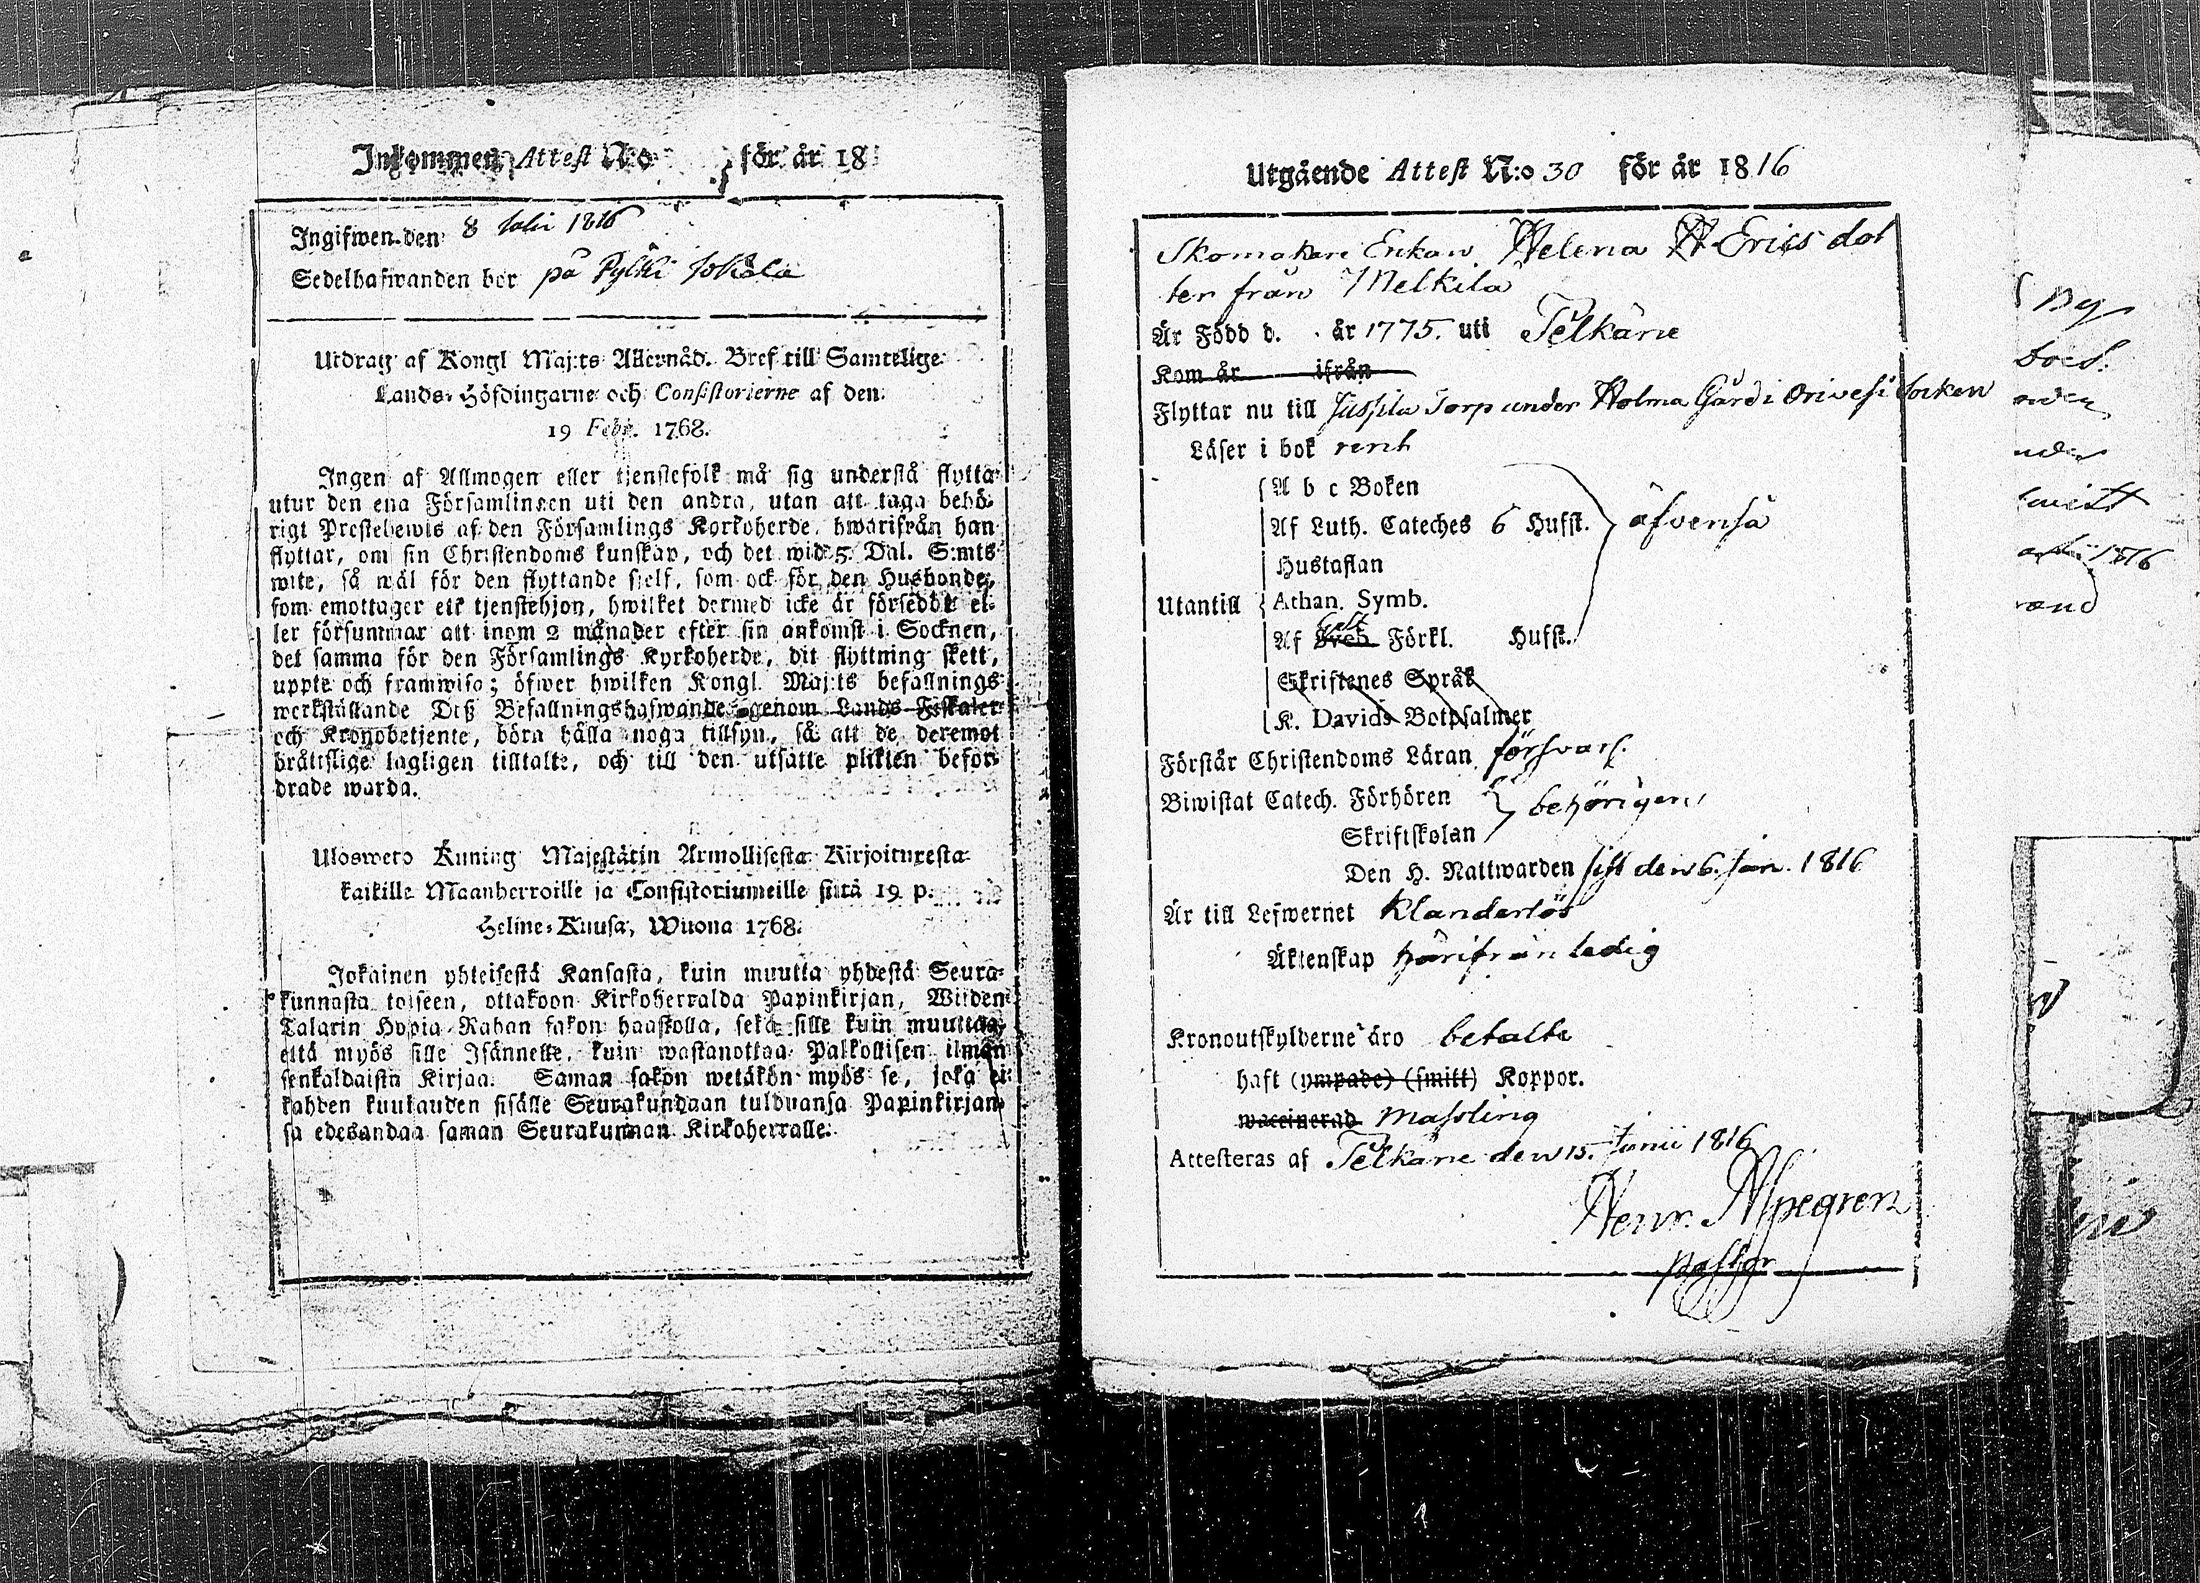 Inkommen Attest N:o för år 18
Ingifwen den 8 Julii 1816
Sedelhafwanden bor på Pylki Jokala
Utdrag af Kongl Maj:ts Allernåd. Bref till Samtelige
Lands-Höfdingarne och Consistorierne af den
19 Febr. 1768.
Ingen af Allmogen eller tjenstefolk må sig understå flytta
utur den ena Församlingen uti den andra, utan att taga behö-
rigt Prestebewis af den Församlings Kyrkoherde, hwarifrån han
flyttar, om sin Christendoms kunskap, och det wid 5 Dal. S:mts
wite, så wäl för den flyttande sjelf, som ock för den Husbonde,
som emottager ett tjenstehjon, hwilket dermed icke är försedt el-
ler försummar att inom 2 månader efter sin ankomst i Socknen,
det samma för den Församlings Kyrkoherde, dit flyttning skett,
uppte och framwisa; öfwer hwilken Kongl. Maj:ts befallnings
werkställande Deß Befallningshafwande genom Lands Fiskaler
och Kronobetjente, böra hålla noga tillsyn, så att de deremot
bråttslige lagligen tilltalte, och till den utsatte plikten beför-
drade warda.
Ulosweto Kuning Majestätin Armollisesta Kirjoituxesta
kaikille Maanherroille ja Consistoriumeille siitä 19 p.
Helme-Kuusa, Wuona 1768.
Jokainen yhteisestä Kansasta, kuin muutta yhdestä Seura-
kunnasta toiseen, ottakoon Kirkoherralda Papinkirjan, Wiiden
Talarin Hopia Rahan sakon haastolla, sekä sille kuin muuttaa,
että myös sille Isännelle, kuin wastanottaa Palkollisen ilman
senkaldaista Kirjaa. Saman sakon wetäkön myös se, joka ei
kahden kuukauden sisälle Seurakundaan tulduansa Papinkirjan-
sa edesandaa saman Seurakunnan Kirkoherralle.
Utgående Attest N:o 30 för år 1816
Skomakare Enkan Helena H Erics dot
ter från Melkila
Är Född d. år 1775. uti Pelkäne
Kom år ifrån
Flyttar nu till Jussila Torp under Holma Gård i Orivesi Socken
Läser i bok rent
A b c Boken
Af Luth. Cateches 6 Hufst. äfvenså
Hustaflan
Utantill Athan. Symb.
Af Sveb. Förkl. Hufst.
Skriftenes Språk
K. Davids Botpsalmer
Förstår Christendoms Läran försvarl.
Biwistat Catech. Förhören behörigen
Skriftskolan
Den H. Nattwarden sist den 6. Jan. 1816
Är till Lefwernet Klanderlös
Äktenskap härifrån ledig
Kronoutskylderne äro betalte
haft (ympade) (smitt) Koppor.
waccinerad Massling
Attesteras af Pelkäne den 15. Junii 1816
Henr. Alpegren
Past:gr
Ny
Junii 1816